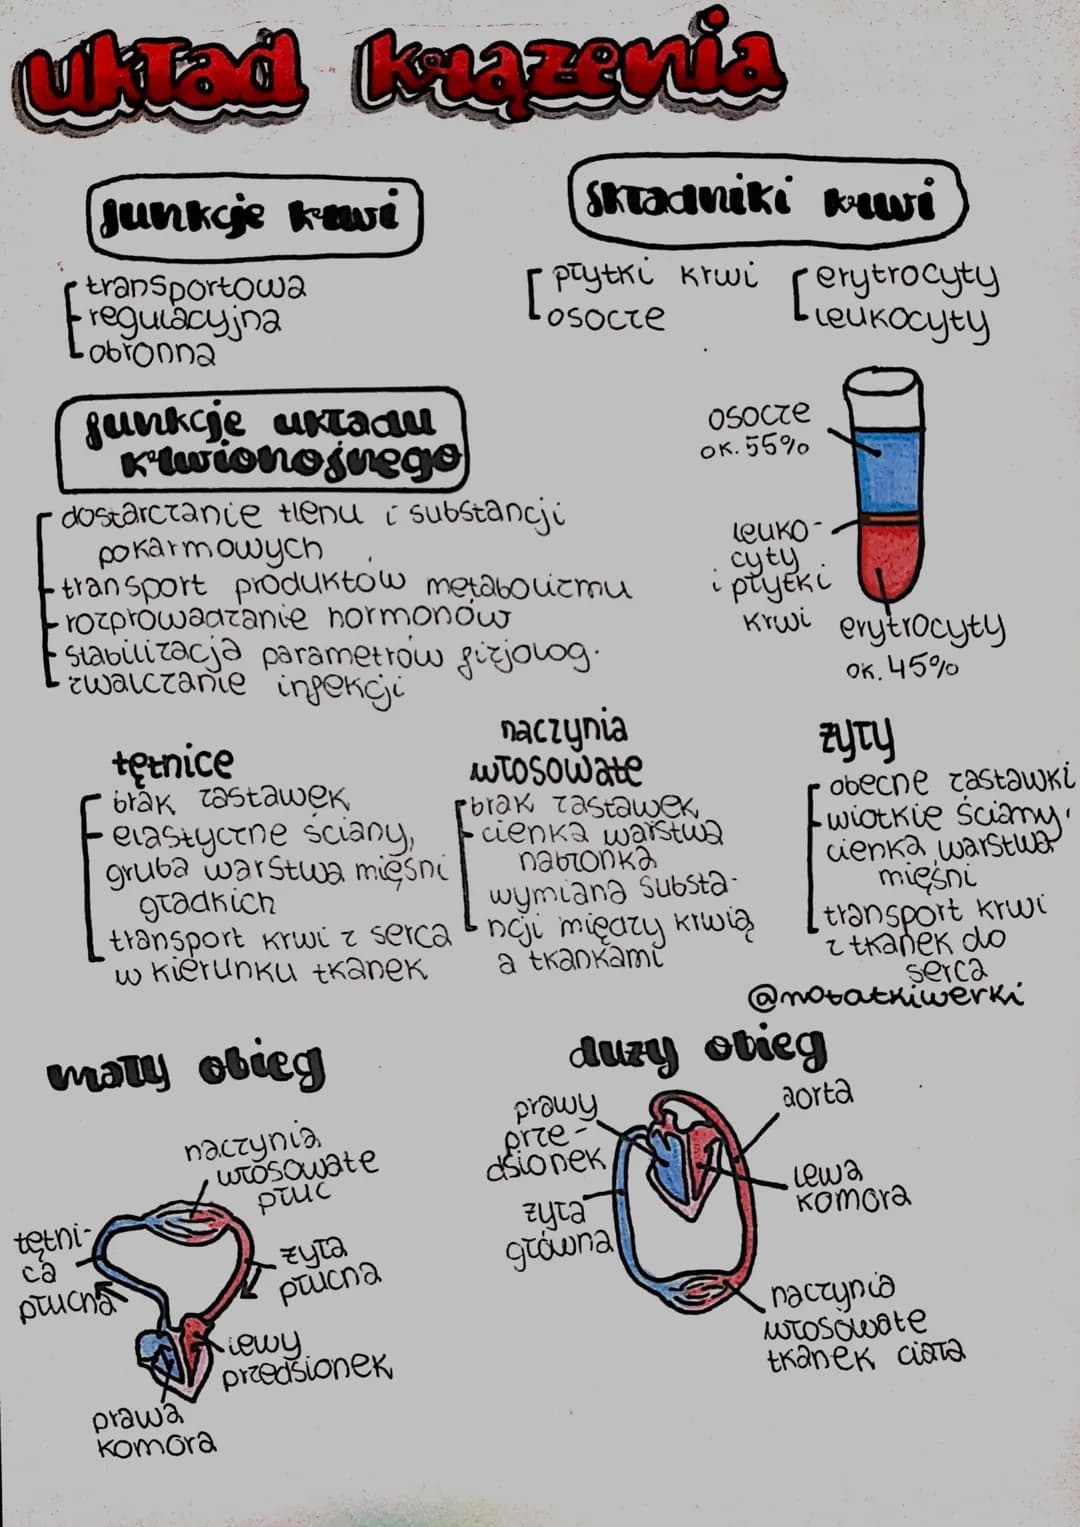 układ krążenia
funkcje krwi
transportowa
regulacyjna
obronna
składniki krwi
płytki krwi
osocze
erytrocyty
leukocyty
funkcje układu
krwionośnego
dostarczanie tlenu i substancji
pokarmowych
transport produktów metabolizmu
rozprowadzanie hormonów
stabilizacja parametrów fizjolog.
zwalczanie infekcji
osocze
ok. 55%
leuko-
cyty
i płytki
krwi
erytrocyty
ok. 45%
tętnice
brak zastawek
elastyczne ściany,
gruba warstwa mięśni
gładkich
transport krwi z serca
w kierunku tkanek
naczynia
włosowate
brak zastawek
cienka warstwa
nabłonka
wymiana substa-
ncji między krwią
a tkankami
żyły
obecne zastawki
wiotkie ściany,
cienka warstwa
mięśni
transport krwi
z tkanek do
serca
@notatkiwerki
mały obieg
naczynia
włosowate
płuc
tętni-
ca
płucna
żyła
płucna
lewy
przedsionek
prawa
komora
duży obieg
prawy
prze-
dsionek
aorta
lewa
komora
żyła
główna
naczynia
włosowate
tkanek ciała